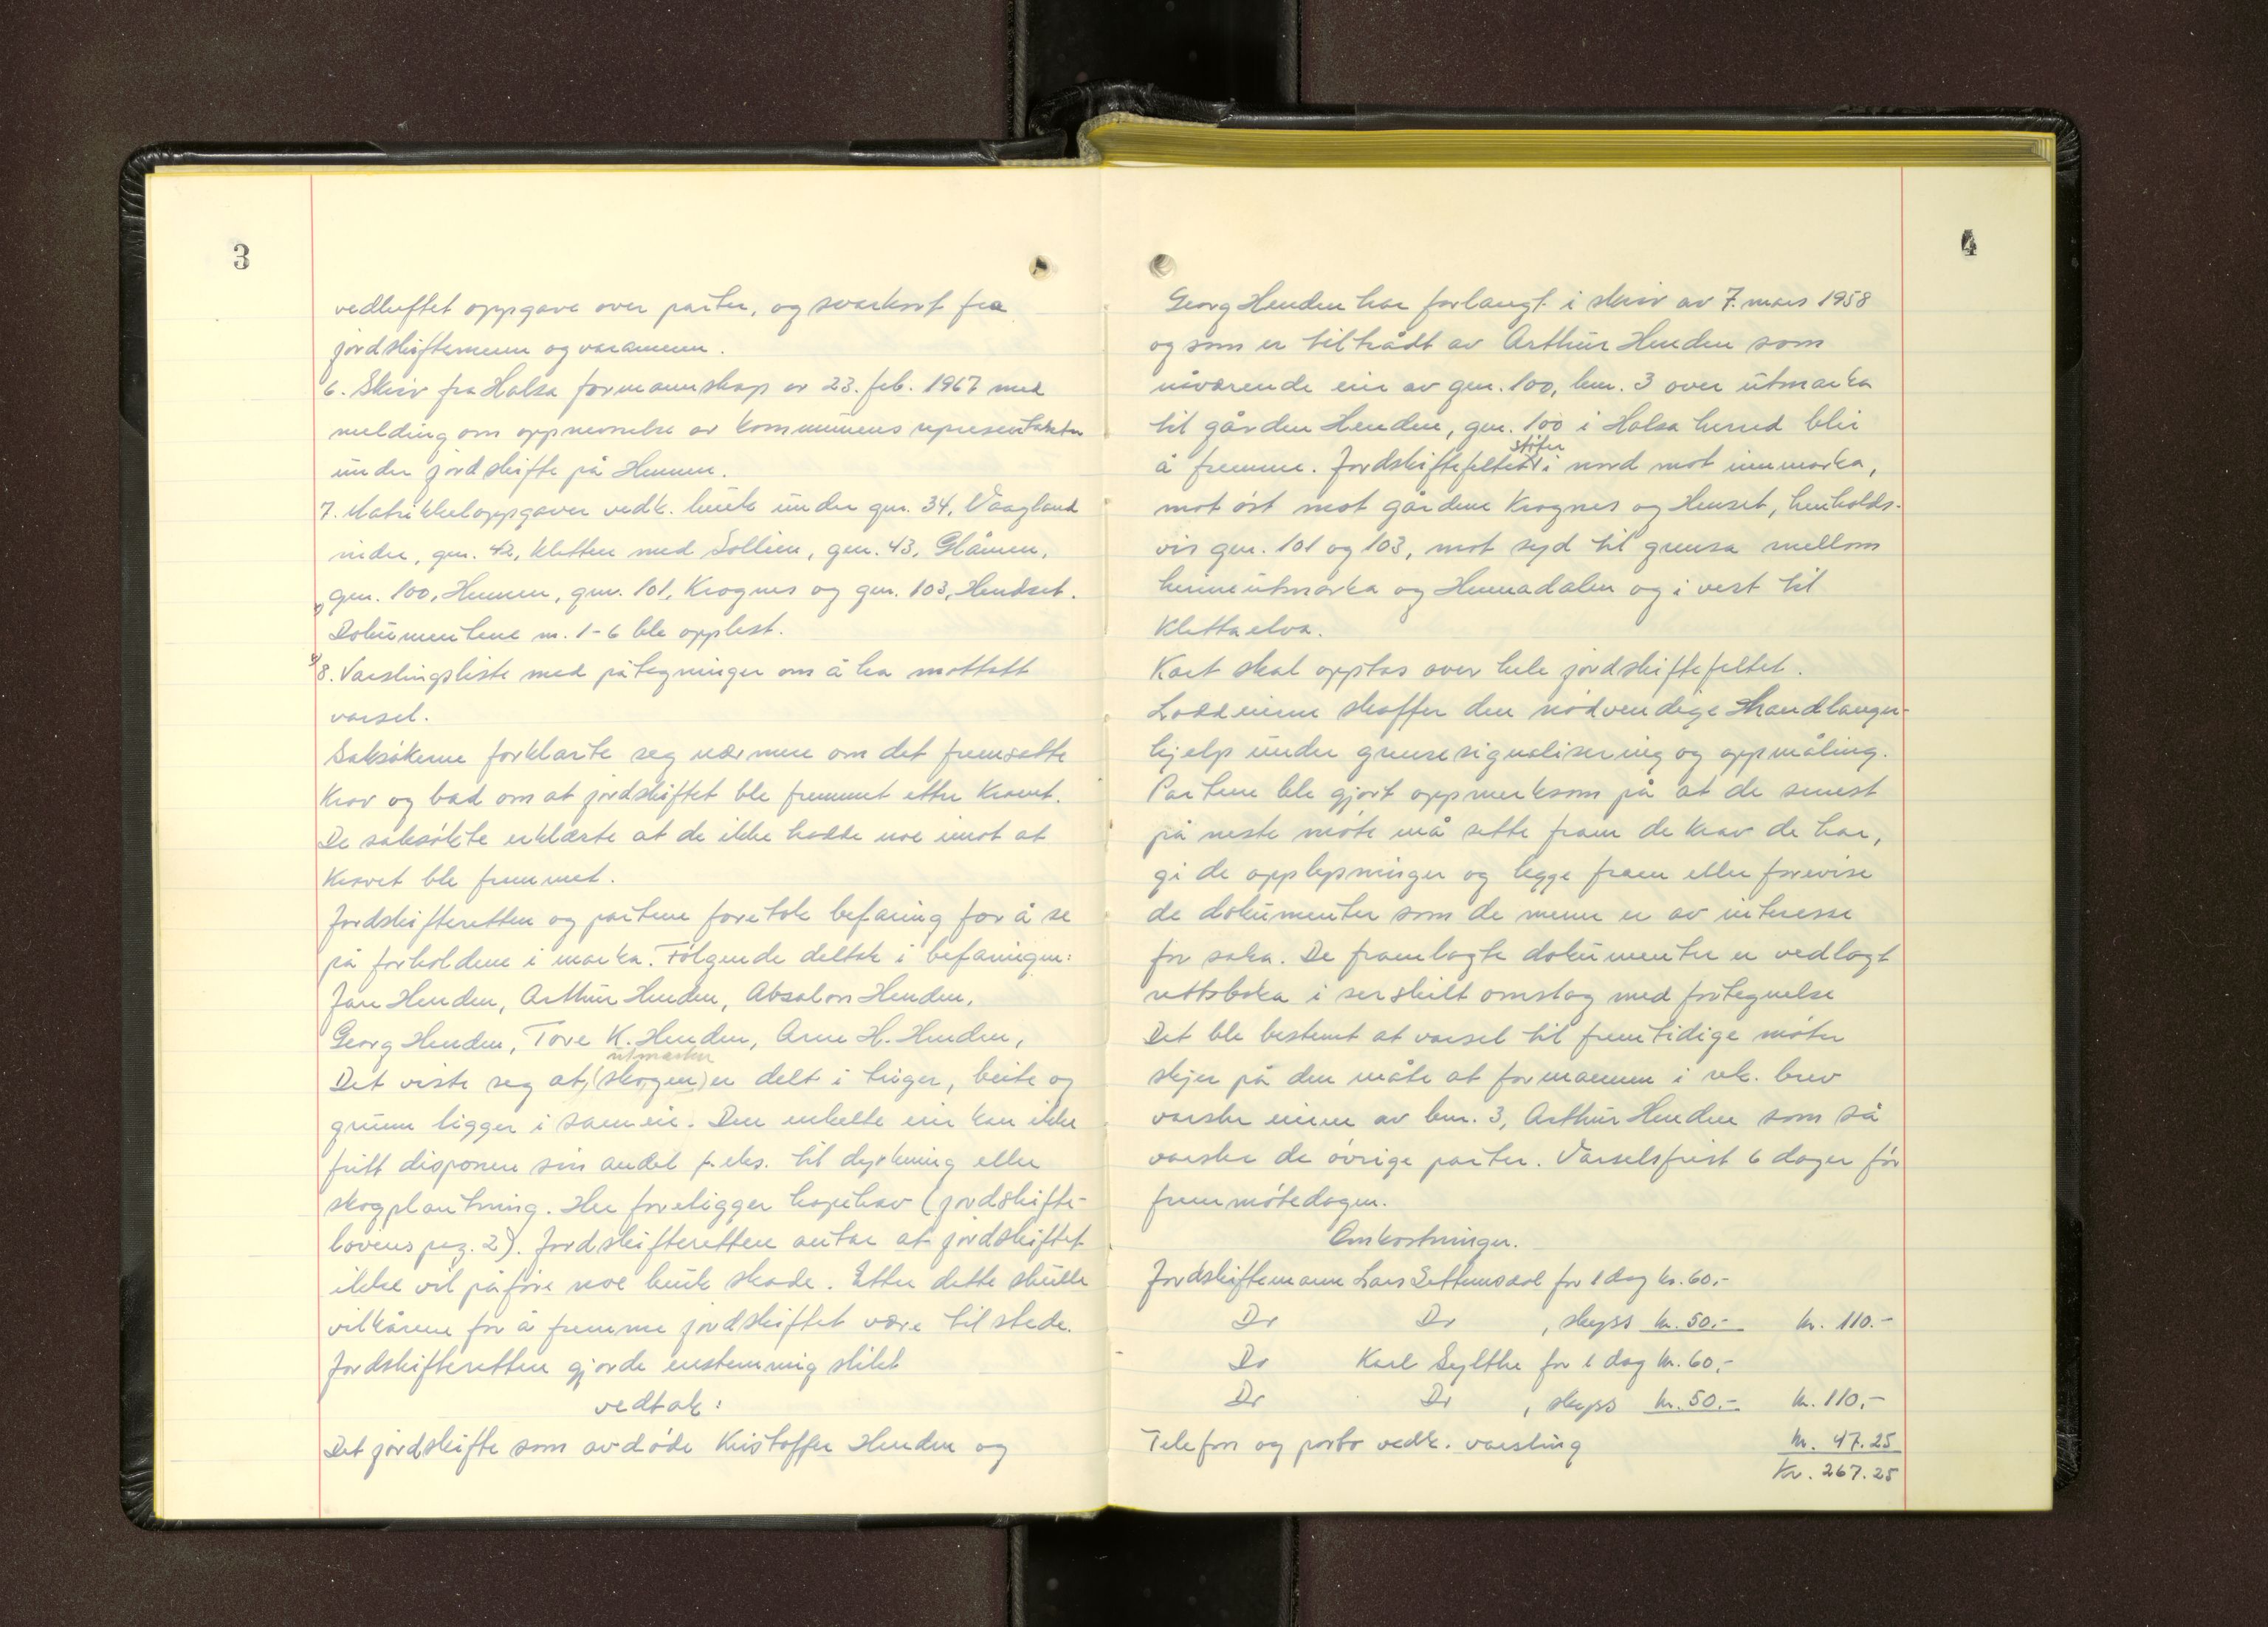 3
vedheftet oppgave over parter, og svarkort fra
jordskiftemenn og varamenn.
6. Skriv fra Halsa formannskap av 23. feb. 1967 med
melding om oppnevnelse av kommunens representanter
under jordskifte på Hennen.
7. Matrikkeloppgaver vedk. bruk under gnr. 34, Vaagland
indre, gnr. 42, Kletten med Sollien, gnr. 43, Glåmen,
gnr. 100, Hennen, gnr. 101, Krognes og gnr. 103, Hendset.
Dokumentene nr. 1-6 ble opplest.
8. Varslingsliste med påtegninger om å ha mottatt
varsel.
Saksøkerne forklarte seg nærmere om det fremsatte
krav og bad om at jordskiftet ble fremmet etter kravet.
De saksøkte erklærte at de ikke hadde noe imot at
kravet ble fremmet.
Jordskifteretten og partene foretok befaring for å se
på forholdene i marka. Følgende deltok i befaringen:
Jan Henden, Arthur Henden, Absalon Henden,
Georg Henden, Tore K. Henden, Arne H. Henden,
utmarka
Det viste seg at (skogen) er delt i teiger, beite og
grunn ligger i sameie. Den enkelte eier kan ikke
fritt disponere sin andel f.eks. til dyrkning eller
skogplantning. Her foreligger tapehav (jordskifte-
lovens prg. 2). Jordskifteretten antar at jordskiftet
ikke vil påføre noe bruk skade. Etter dette skulle
vilkårene for å fremme jordskiftet være til stede.
Jordskifteretten gjorde enstemmig slikt
vedtak:
Det jordskifte som avdøde Kristoffer Henden og
4
Georg Henden har forlangt i skriv av 7. mars 1958
og som er tiltrådt av Arthur Henden som
nåværende eier av gnr. 100, bnr. 3 over utmarka
til gården Henden, gnr. 100 i Halsa herred blir
støter
å fremme. Jordskiftefeltet i nord mot innmarka,
mot øst mot gårdene Krognes og Henset, henholds-
vis gnr. 101 og 103, mot syd til grensa mellom
heimeutmarka og Hennadalen og i vest til
Klettaelva.
Kart skal opptas over hele jordskiftefeltet.
Loddeierne skaffer den nødvendige handlanger-
hjelp under grensesignalisering og oppmåling.
Partene ble gjort oppmerksom på at de senest
på neste møte må sette fram de krav de har,
gi de opplysninger og legge fram eller forevise
de dokumenter som de mener er av interesse
for saka. De framlagte dokumenter er vedlagt
rettsboka i serskilt omslag med fortegnelse
Det ble bestemt at varsel til fremtidige møter
skjer på den måte at formannen i rek. brev
varsler eieren av bnr. 3, Arthur Henden som så
varsler de øvrige parter. Varselsfrist 6 dager før
fremmøtedagen.
Omkostninger.
Jordskiftemann Lars Settemsdal for 1 dag kr. 60,-
Do Do , skyss kr. 50.- kr. 110.-
Do Karl Sylthe for 1 dag kr. 60,-
Do Do , skyss kr. 50.- kr. 110,-
Telefon og porto vedk. varsling kr. 47.25
kr. 267.25